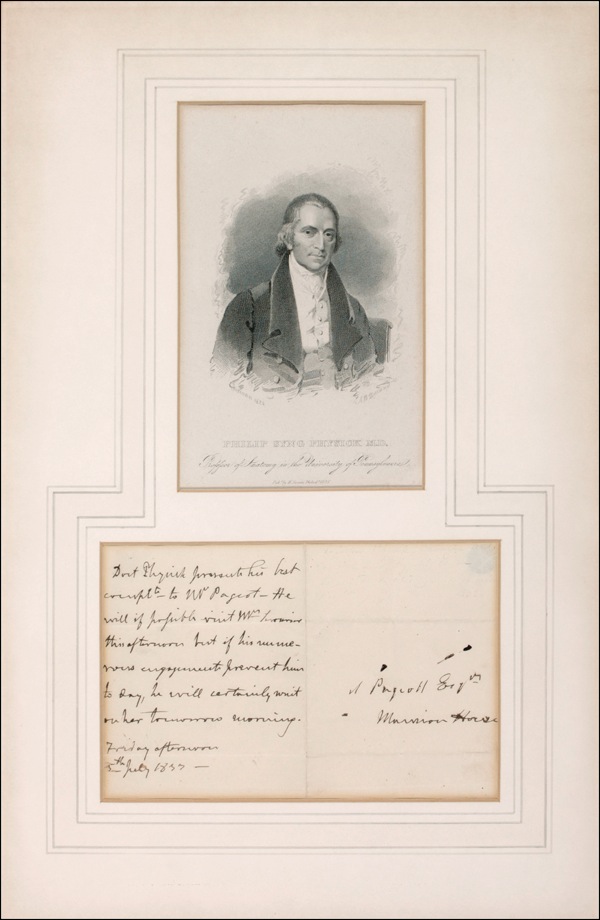 PHILIP SYNG PHYSICK M.D.
Professor of Anatomy in the University of Pennsylvania
Doct Physick presents his best
complts to Mr Pageot – He
will if possible visit Mrs
this afternoon but if his nume-
rous engagements prevent him
to day, he will certainly wait
on her tomorrow morning.
Friday afternoon
July 1837 –
Esqre
Mansion House